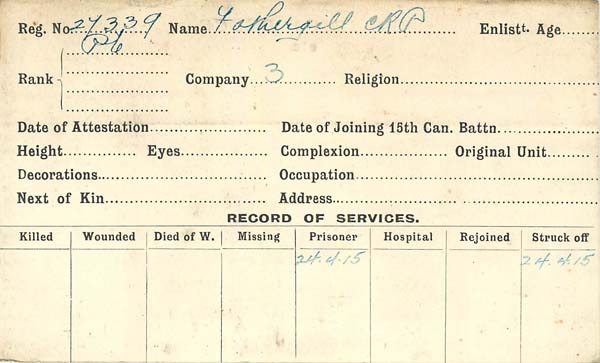 Reg. No. 27339 Name Fothergill CRP Enlistt. Age
Pte
Rank Company 3 Religion
Date of Attestation Date of Joining 15th Can. Battn.
Height Eyes Complexion Original Unit
Decorations Occupation
Next of Kin Address
RECORD OF SERVICES.
Killed Wounded Died of W. Missing Prisoner Hospital Rejoined Struck off
24.4.15 24.4.15